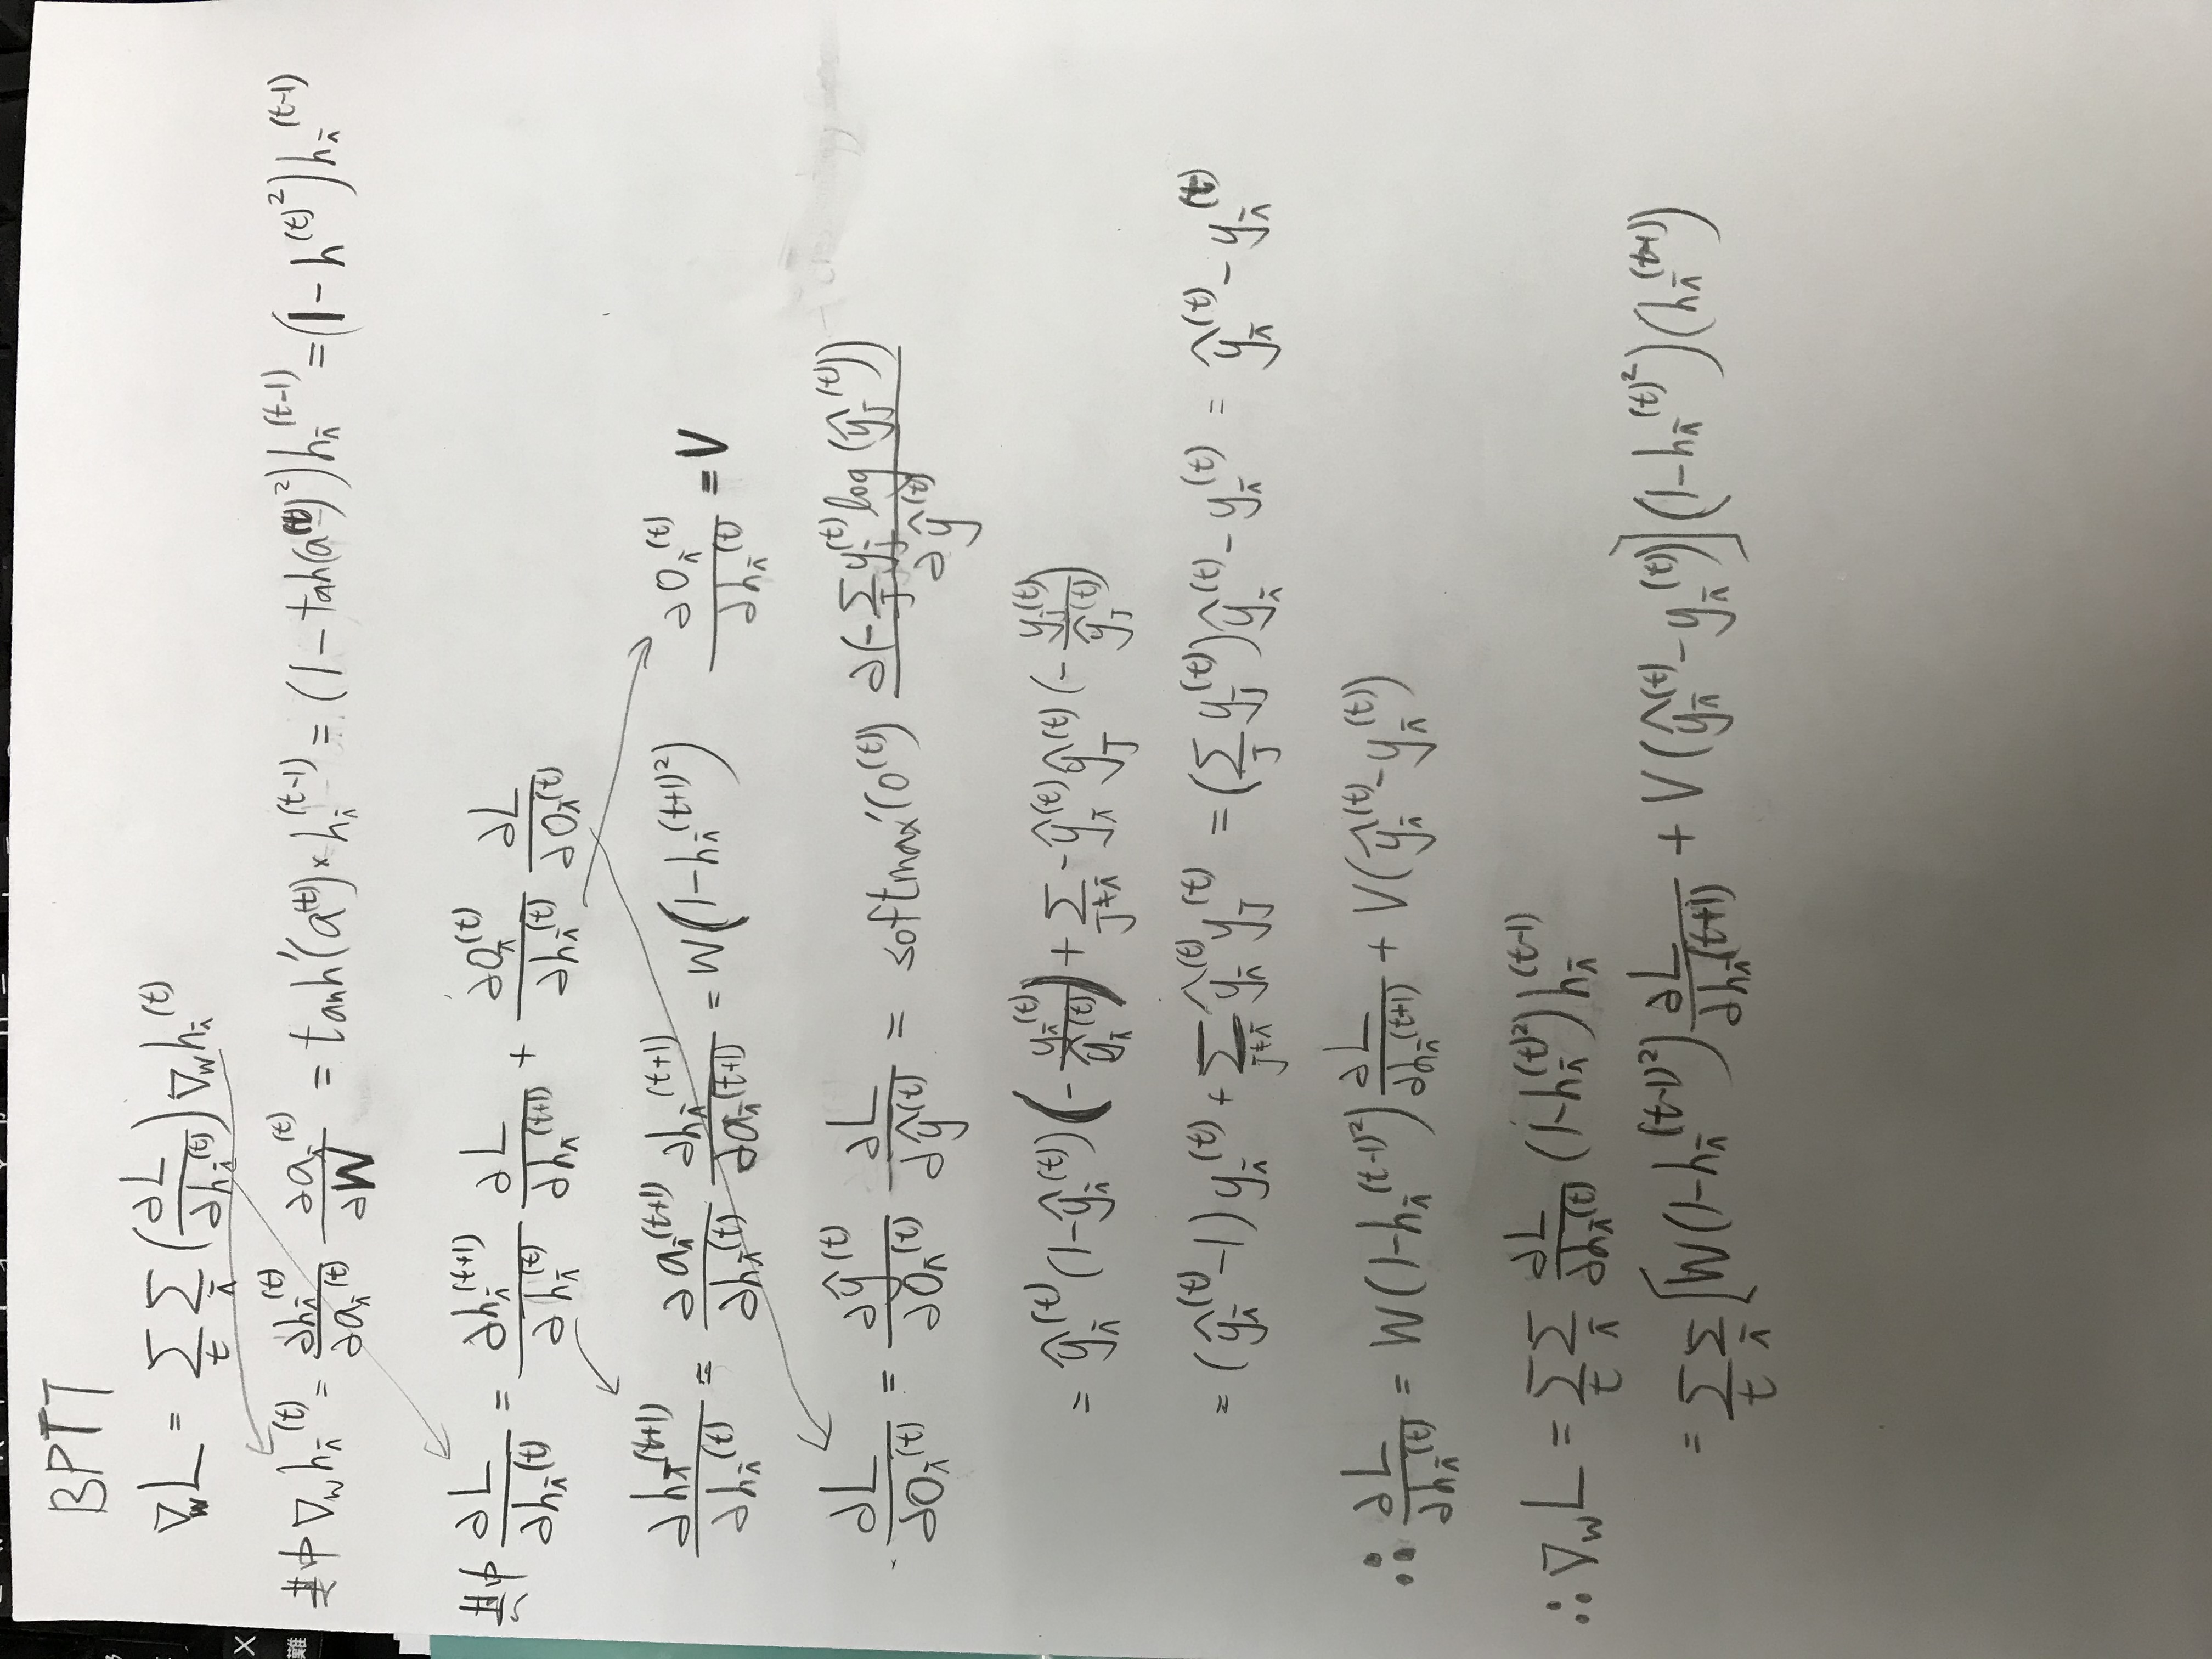 BPTT
∇_W L = Σ_t Σ_i (∂L/∂h_i^(t)) ∇_W h_i^(t)
其中 ∇_W h_i^(t) = ∂h_i^(t)/∂a_i^(t) ∂a_i^(t)/∂W = tanh'(a^(t)) × h_i^(t-1) = (1 - tah(a^(t))^2) h_i^(t-1) = (1 - h^(t)^2) h_i^(t-1)
其中 ∂L/∂h_i^(t) = ∂h_i^(t+1)/∂h_i^(t) ∂L/∂h_i^(t+1) + ∂O_i^(t)/∂h_i^(t) ∂L/∂O_i^(t)
∂h_i^(t+1)/∂h_i^(t) = ∂a_i^(t+1)/∂h_i^(t) ∂h_i^(t+1)/∂a_i^(t+1) = W(1 - h_i^(t+1)^2) ∂O_i^(t)/∂h_i^(t) = V
∂L/∂O_i^(t) = ∂ŷ^(t)/∂O_i^(t) ∂L/∂ŷ^(t) = softmax'(O^(t)) ∂(-Σ_j y_j^(t) log(ŷ_j^(t)))/∂ŷ^(t)
= ŷ_i^(t) (1 - ŷ_i^(t)) (- y_i^(t)/ŷ_i^(t)) + Σ_{j≠i} -ŷ_i^(t) ŷ_j^(t) (- y_j^(t)/ŷ_j^(t))
= (ŷ_i^(t) - 1) y_i^(t) + Σ_{j≠i} ŷ_i^(t) y_j^(t) = (Σ_j y_j^(t)) ŷ_i^(t) - y_i^(t) = ŷ_i^(t) - y_i^(t)
∴ ∂L/∂h_i^(t) = W(1 - h_i^(t-1)^2) ∂L/∂h_i^(t+1) + V(ŷ_i^(t) - y_i^(t))
∴ ∇_W L = Σ_t Σ_i ∂L/∂h_i^(t) (1 - h_i^(t)^2) h_i^(t-1)
= Σ_t Σ_i [W(1 - h_i^(t-1)^2) ∂L/∂h_i^(t+1) + V(ŷ_i^(t) - y_i^(t))] (1 - h_i^(t)^2) (h_i^(t-1))
X
難